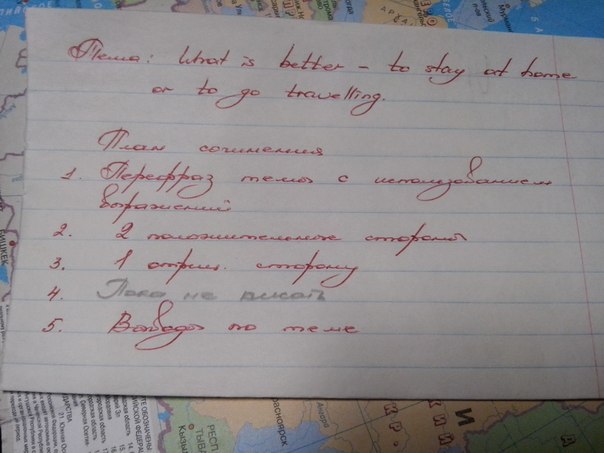 Тема: What is better – to stay at home
or to go travelling.
План сочинения
1. Перефраз темы с использованием
выражений
2. 2 положительные стороны
3. 1 отриц. сторону
4. Пока не писать
5. Выводы по теме
БИШКЕК
РЕСП
ТЫВА
Кызыл
Ангара
И